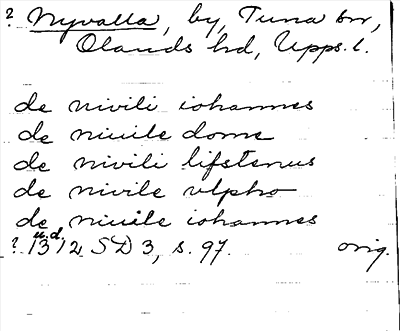 ? Nyvalla, by, Tuna sn,
Olands hd, Upps. l.
de nivili iohannes
de niuile doms
de nivili lifstenus
de nivile vlpho
de niuile iohannes
u.d.
? 1312 SD 3, s. 97. orig.